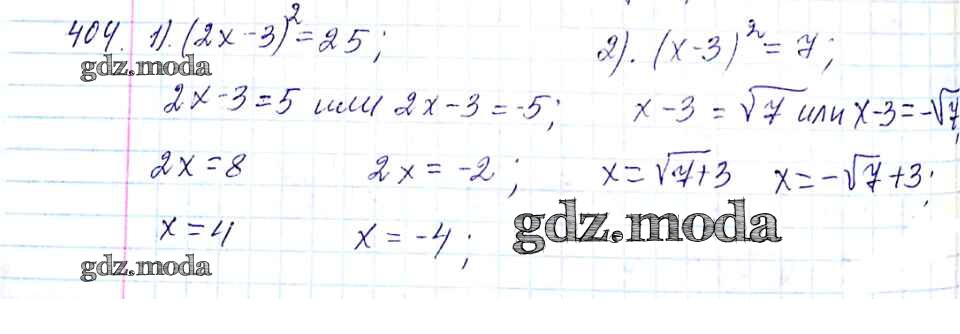 404. 1). (2x-3)²=25; 2). (x-3)²=7;
gdz.moda
2x-3=5 или 2x-3=-5; x-3=√7 или x-3=-√7;
2x=8 2x=-2; x=√7+3 x=-√7+3;
x=4 x=-4; gdz.moda
gdz.moda